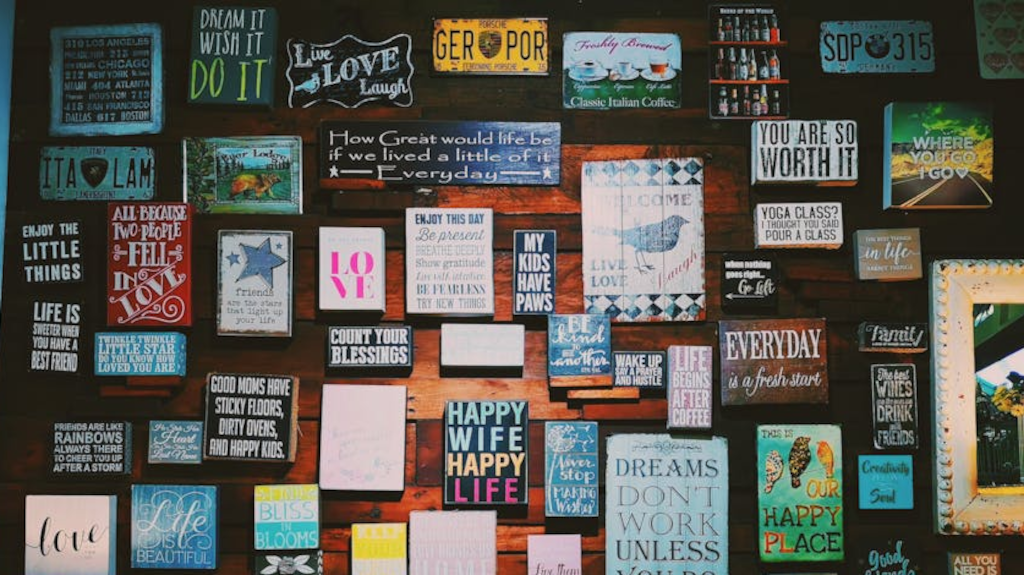 310 LOS ANGELES
CHICAGO
212 NEW YORK
404 ATLANTA
HOUSTON 713
415 SAN FRANCISCO
DALLAS 617 BOSTON
DREAM IT
WISH IT
DO IT
Live
LOVE
Laugh
PORSCHE
GER POR
Freshly Brewed
Classic Italian Coffee
SDP 315
GERMANY
ITALY
ITA LAM
How Great would life be
if we lived a little of it
Everyday
YOU ARE SO
WORTH IT
WHERE
YOU GO
I GO
ENJOY THE
LITTLE
THINGS
ALL BECAUSE
TWO PEOPLE
FELL
IN
LOVE
friends
are the stars
that light up
your life
LO
VE
ENJOY THIS DAY
Be present
BREATHE DEEPLY
Show gratitude
BE FEARLESS
TRY NEW THINGS
MY
KIDS
HAVE
PAWS
WELCOME
LIVE
LOVE
laugh
YOGA CLASS?
I THOUGHT YOU SAID
POUR A CLASS
when nothing
goes right..
Go left
THE BEST THINGS
in life
AREN'T THINGS
LIFE IS
SWEETER WHEN
YOU HAVE A
BEST FRIEND
TWINKLE TWINKLE
LITTLE STAR
DO YOU KNOW HOW
LOVED YOU ARE
COUNT YOUR
BLESSINGS
BE
kind
to one
another
WAKE UP
SAY A PRAYER
AND HUSTLE
LIFE
BEGINS
AFTER
COFFEE
EVERYDAY
is a fresh start
Family
The best
WINES
are the ones we
DRINK
with
FRIENDS
GOOD MOMS HAVE
STICKY FLOORS,
DIRTY OVENS,
AND HAPPY KIDS.
FRIENDS ARE LIKE
RAINBOWS
ALWAYS THERE
TO CHEER YOU UP
AFTER A STORM
HAPPY
WIFE
HAPPY
LIFE
Never
stop
MAKING
Wishes
DREAMS
DON'T
WORK
UNLESS
YOU DO
THIS IS
OUR
HAPPY
PLACE
Creativity
Soul
love
Life
IS
BEAUTIFUL
BLISS
IN
BLOOMS
Live them
Good
friends
ALL YOU
NEED IS